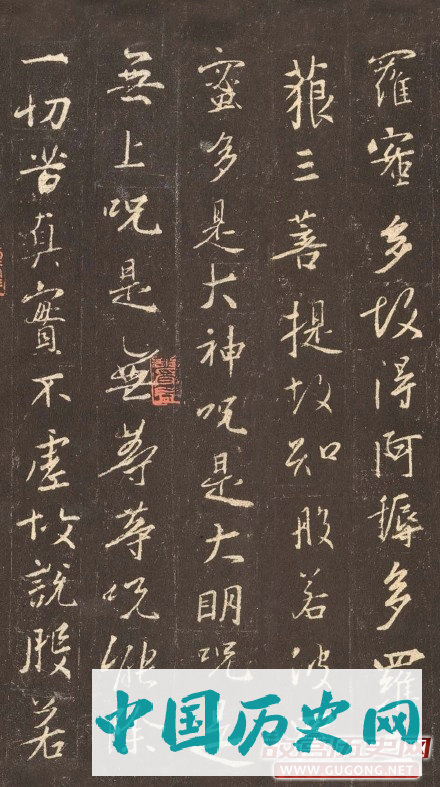 羅蜜多故得阿耨多羅
藐三菩提故知般若波
蜜多是大神咒是大明咒是
無上咒是無等等咒能除
一切苦真實不虛故說般若
中国历史网
WWW.GUCONG.NET